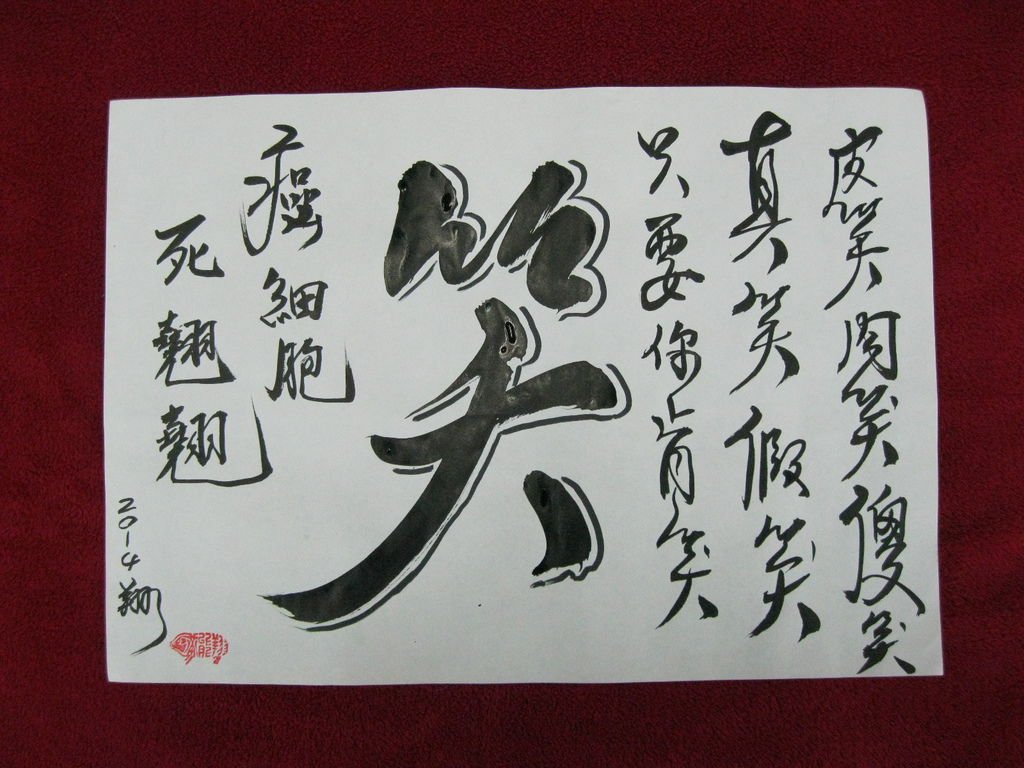 皮笑肉笑傻笑
真笑假笑
只要你肯笑
笑
癌細胞
死翹翹
2014翔